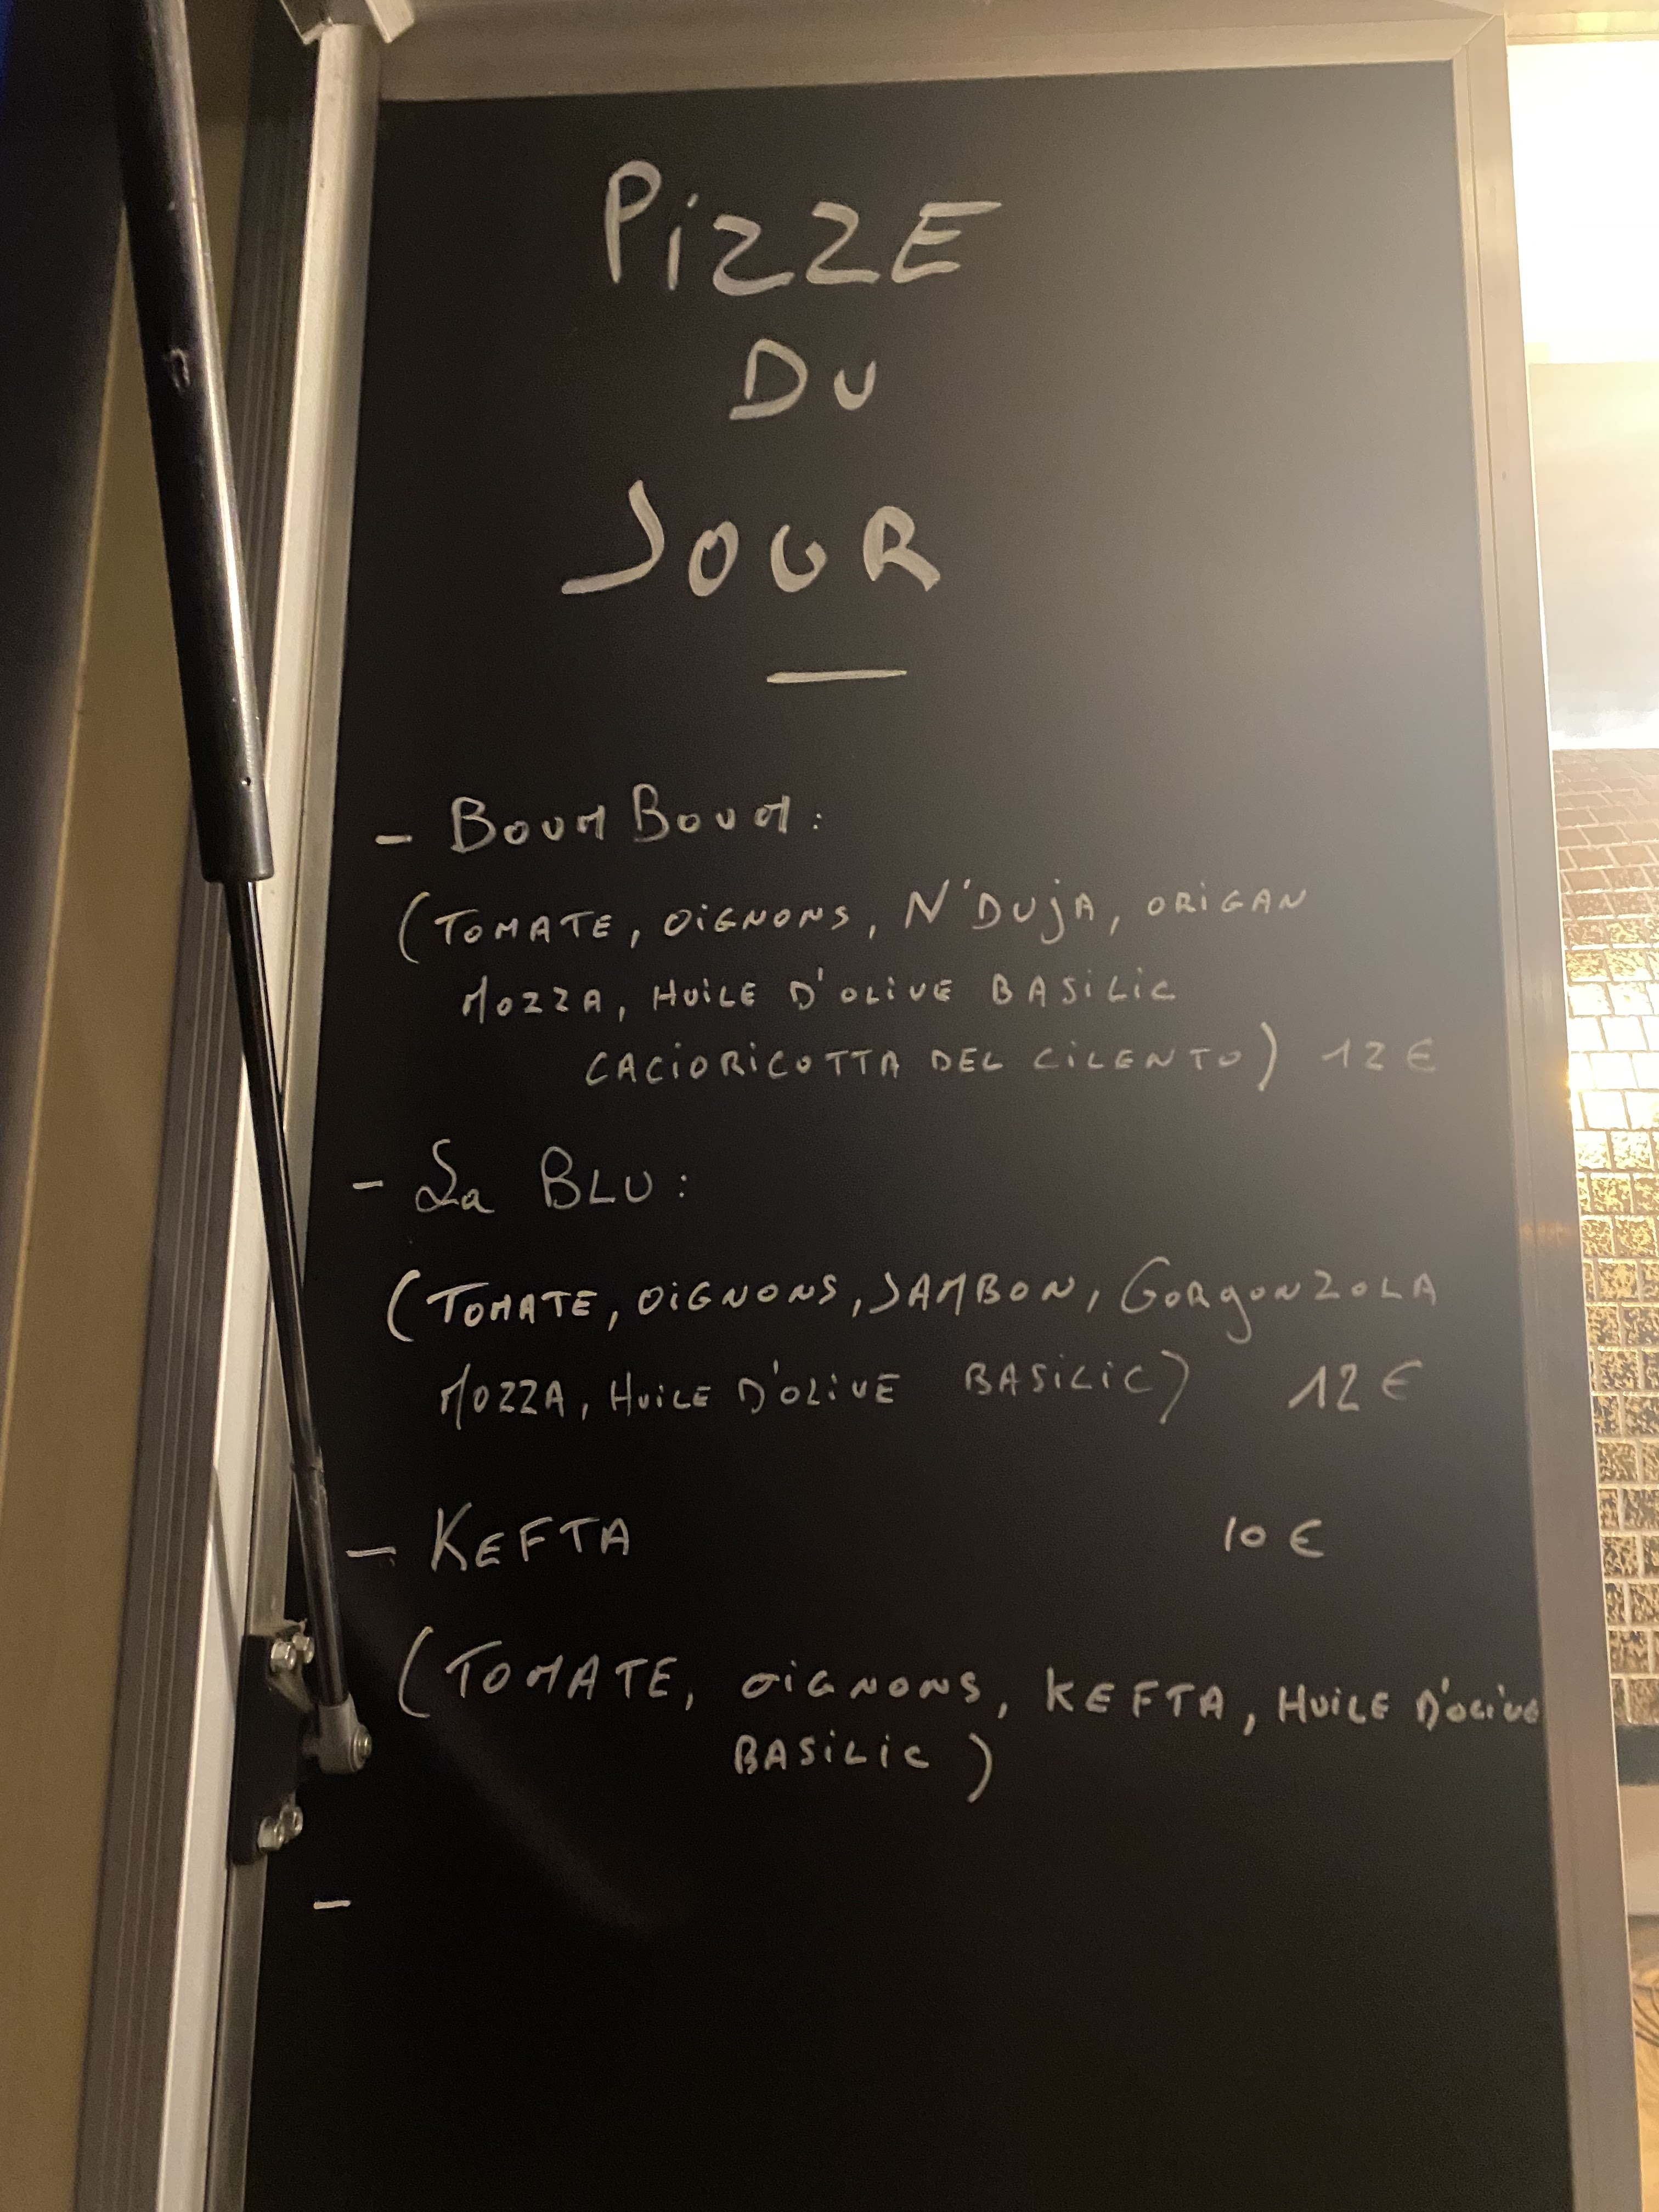 PiZZE
DU
JOUR
- BOUM BOUM :
(TOMATE, OiGNONS, N'DUjA, ORiGAN
MOZZA, HUiLE D'OLiVE BASiLiC
CACiORiCOTTA DEL CiLENTO) 12 €
- La BLU :
(TOMATE, OiGNONS, JAMBON, GORgONZOLA
MOZZA, HUiLE D'OLiVE BASiLiC) 12 €
- KEFTA 10 €
(TOMATE, OiGNONS, KEFTA, HUiLE D'OLiVE
BASiLiC)
-